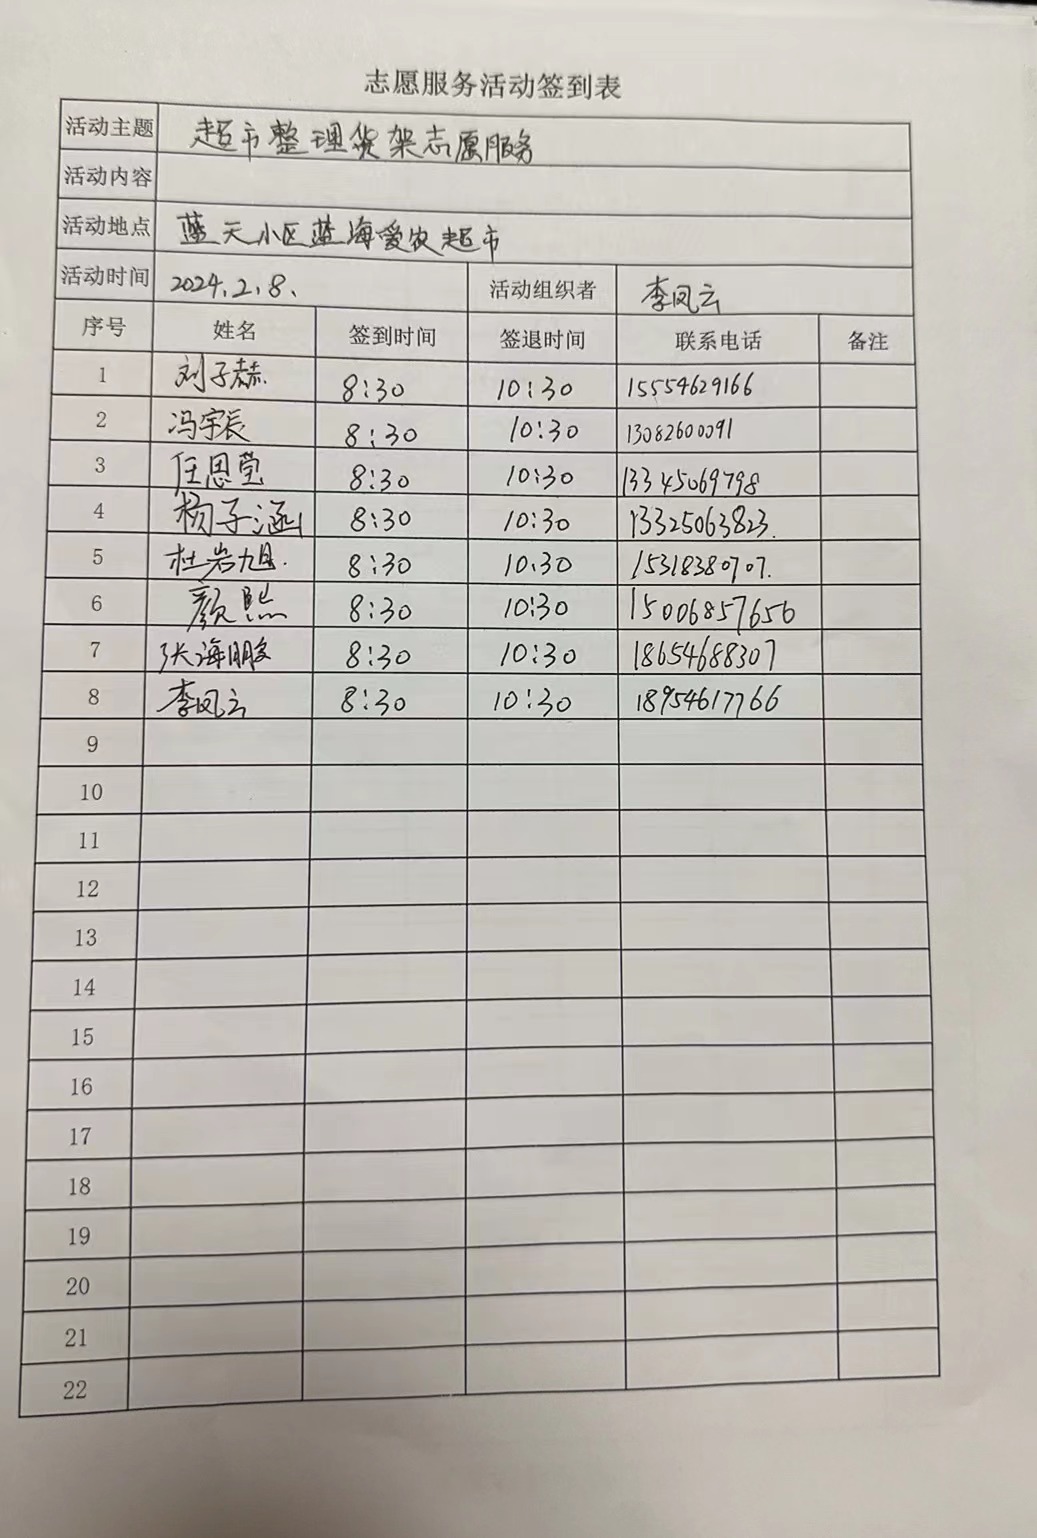 志愿服务活动签到表
活动主题 超市整理货架志愿服务
活动内容
活动地点 蓝天小区蓝海爱农超市
活动时间 2024.2.8、 活动组织者 李凤云
序号 姓名 签到时间 签退时间 联系电话 备注
1 刘子赫. 8:30 10:30 15554629166
2 冯宇辰 8:30 10:30 13082600091
3 任思莹 8:30 10:30 13345069798
4 杨子涵 8:30 10:30 13325063823.
5 杜岩旭. 8:30 10:30 15318380707.
6 颜熙 8:30 10:30 15006857656
7 张海朋 8:30 10:30 18654688307
8 李凤云 8:30 10:30 18954617766
9
10
11
12
13
14
15
16
17
18
19
20
21
22